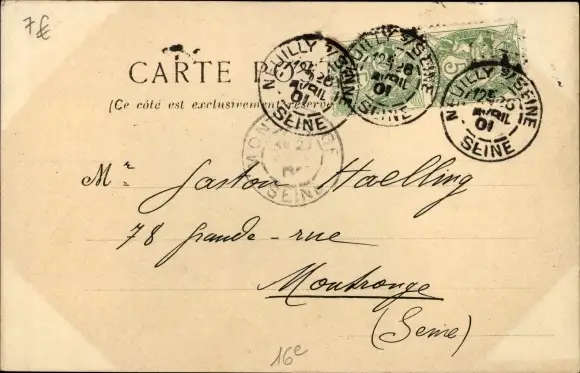 7€
CARTE P
(Ce côté est exclusivement réservé
NEUILLY S/SEINE
12 26
AVRIL
01
SEINE
NEUILLY S/SEINE
12 26
AVRIL
01
SEINE
5
NEUILLY S/SEINE
12 26
AVRIL
01
SEINE
MON GE
27
SEINE
Mr Gaston Haelling
78 Grande-rue
Montrouge
(Seine)
16e